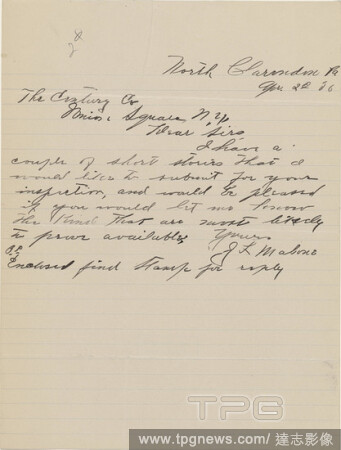 North Clarendon Pa
The Century Co
Union Square N.Y.
Dear Sirs
I have a
couple of short stories that I
would like to submit for your
inspection, and would be pleased
if you would let me know
the kind that are most likely
to prove available.
Yours
J L Malone
P.S.
Enclosed find stamp for reply
TPG
www.tpgnews.com / 達志影像